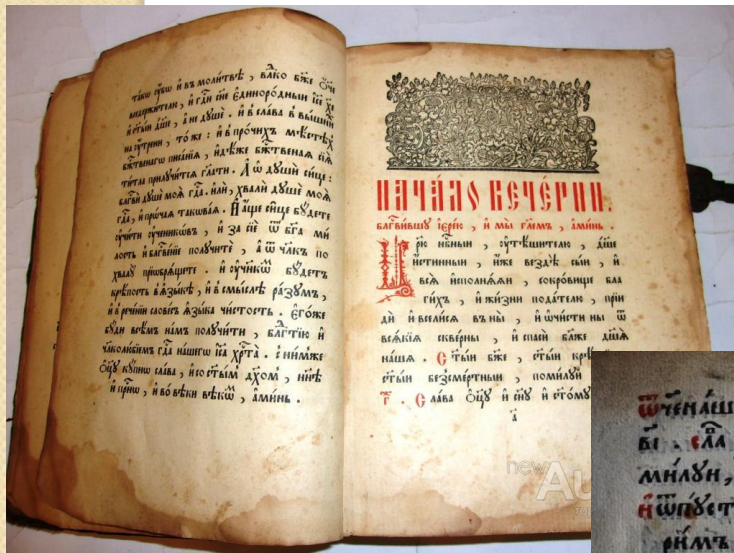 такѡ сꙋбѡ и҆ въ моли́твѣ , влⷣко бж҃е ѻ҆́ч҃е
вседержи́телю , и҆ гдⷭ҇и сн҃е є҆диноро́дный і҆и҃се хрⷭ҇те
и҆ ст҃ы́й дш҃е , а҆ не дꙋшѐ . и҆ в сла́ва в вы́шних
на ᲂу҆́трени , то́же : и҆ в про́чихъ мѣ́стѣх
бж҃е́ственагѡ писа́нїѧ , и҆дѣ́же бж҃е́ственаѧ сїѧ̀
ти́тла прилꙋчи́тсѧ гл҃ати . А҆ ѡ҆ дꙋшѝ си́це :
блгⷭ҇вѝ дꙋшѐ моѧ̀ гдⷭ҇а . и҆лѝ , хвалѝ дꙋшѐ моѧ̀
гдⷭ҇а , и҆ про́чаѧ такова́ѧ . И҆ а҆́ще си́це бꙋ́дете
ᲂу҆чи́ти ᲂу҆ченикѡ́въ , и҆ за сїѐ ѿ бг҃а ми́
лость и҆ блгⷭ҇ве́нїе полꙋчи́те , а҆ ѿ чл҃къ по
хвалꙋ̀ прїѡбрѧ́щете . и҆ ᲂу҆чн҃кѡ́мъ бꙋ́детъ
крѣ́пость в ѧ҆зы́кѣ , и҆ в смы́слѣ ра́зꙋмъ ,
и҆ в рече́нїи слове́съ ѧ҆зы́ка чи́стость . Є҆го́же
бꙋ́ди всѣ́мъ на́мъ полꙋчи́ти , блгⷣтїю и҆
чл҃колю́бїемъ гдⷭ҇а на́шегѡ і҆и҃са хрⷭ҇та̀ : с ни́мже
ѻ҆ц҃ꙋ̀ кꙋ́пнѡ сла́ва , и҆ со ст҃ы́мъ дх҃омъ , нн҃ѣ
и҆ при́снѡ , и҆ во вѣ́ки вѣкѡ́мъ , а҆ми́нь .
НАЧА́ЛО ВЕЧЕ́РНИ .
блгⷭ҇ви́вшꙋ і҆ере́ю , и҆ мы̀ гл҃емъ , а҆ми́нь .
Цр҃ю̀ нбⷭ҇ный , ᲂу҆тѣ́шителю , дш҃е
и҆́стинный , и҆́же вездѣ̀ сы́й , и҆
всѧ̀ и҆сполнѧ́ѧй , сокро́вище бла
ги́хъ , и҆ жи́зни пода́телю , прїи
дѝ и҆ всели́сѧ в ны̀ , и҆ ѡ҆чи́сти ны̀ ѿ
всѧ́кїѧ скве́рны , и҆ спасѝ бл҃же дш҃а
на́ша . С ты́й бж҃е , ст҃ы́й
ст҃ы́й безсме́ртный , поми́лꙋй
г҃ . С ла́ва ѻ҆ц҃ꙋ̀ и҆ сн҃ꙋ и҆ ст҃о́мꙋ
а҃
new
Ѿченаш
сла
ми́лꙋй ,
и҆ѿпꙋст
ри́мъ